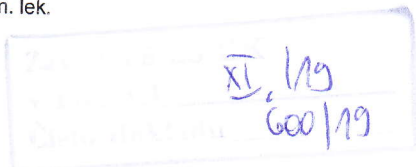 n. lek.
XI. /19
600/19